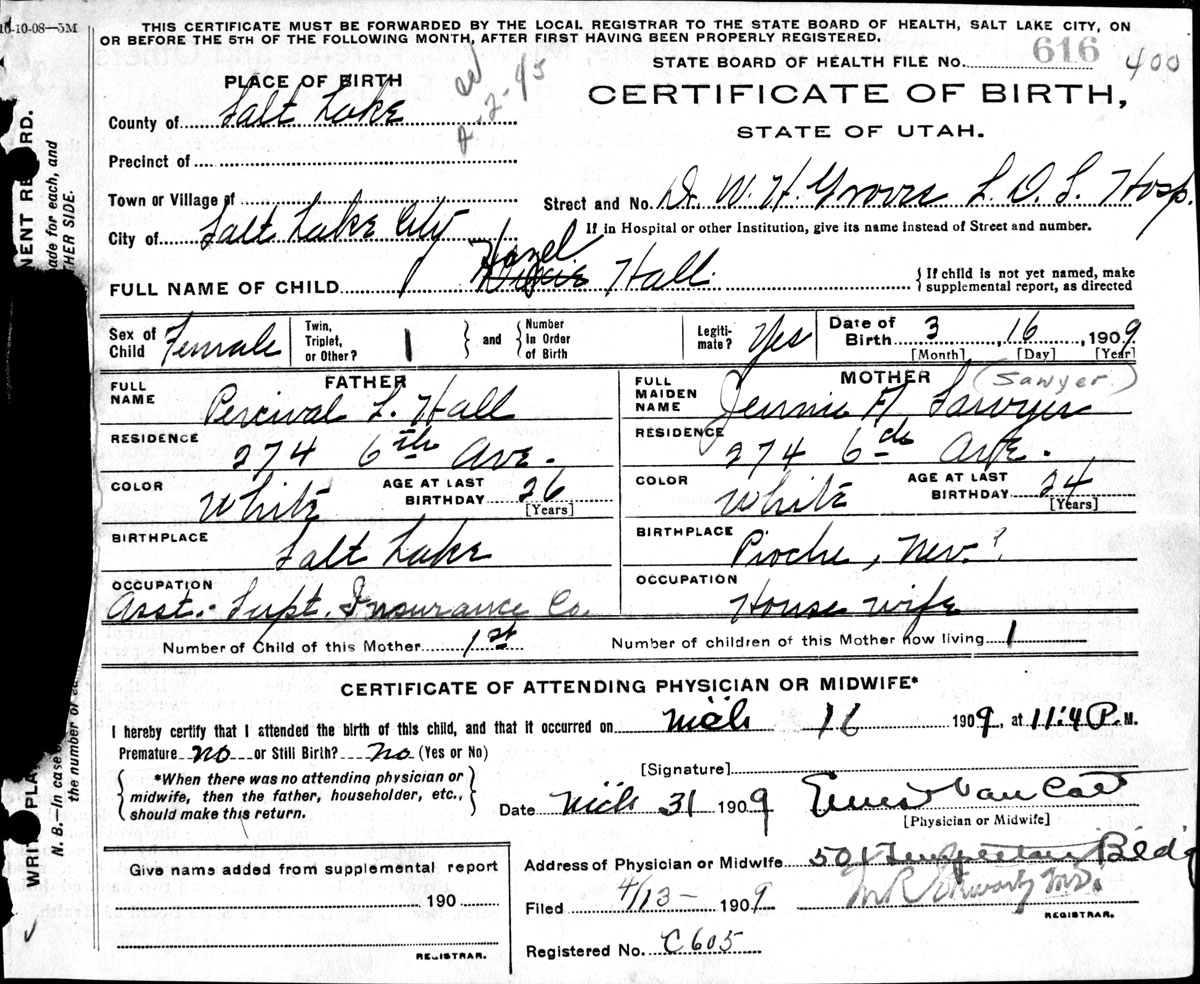 10-10-08—5M
THIS CERTIFICATE MUST BE FORWARDED BY THE LOCAL REGISTRAR TO THE STATE BOARD OF HEALTH, SALT LAKE CITY, ON
OR BEFORE THE 5TH OF THE FOLLOWING MONTH, AFTER FIRST HAVING BEEN PROPERLY REGISTERED.
STATE BOARD OF HEALTH FILE No. 616 400
CERTIFICATE OF BIRTH,
STATE OF UTAH.
PLACE OF BIRTH
2-45
County of Salt Lake
Precinct of
Town or Village of
Street and No. Dr. W. H. Groves L. D. S. Hosp.
City of Salt Lake City
If in Hospital or other Institution, give its name instead of Street and number.
Hazel
FULL NAME OF CHILD Hall
{ If child is not yet named, make
supplemental report, as directed
Sex of Child Female
Twin, Triplet, or Other? 1
and { Number In Order of Birth
Legiti-mate? Yes
Date of Birth 3, 16 1909
[Month] [Day] [Year]
FATHER
FULL NAME Percival L. Hall
RESIDENCE 274 6th Ave.
COLOR White
AGE AT LAST BIRTHDAY 26
[Years]
BIRTHPLACE Salt Lake
OCCUPATION Asst. Supt. Insurance Co.
MOTHER (Sawyer)
FULL MAIDEN NAME Jennie F. Sawyer
RESIDENCE 274 6th Ave.
COLOR White
AGE AT LAST BIRTHDAY 24
[Years]
BIRTHPLACE Pioche, Nev.?
OCCUPATION House wife
Number of Child of this Mother 1st
Number of children of this Mother now living 1
CERTIFICATE OF ATTENDING PHYSICIAN OR MIDWIFE*
I hereby certify that I attended the birth of this child, and that it occurred on Mch 16 1909, at 11:4 P.M.
Premature no or Still Birth? no (Yes or No)
*When there was no attending physician or
midwife, then the father, householder, etc.,
should make this return.
[Signature]
Date Mch 31 1909 Ernest Van Cott
[Physician or Midwife]
Give name added from supplemental report
190
REGISTRAR.
Address of Physician or Midwife 501 Bldg
Filed 4/13- 1909 M.D.
REGISTRAR.
Registered No. C605
WRITE PLA
NENT RE RD.
N. B. In case o
made for each, and
the number of ea
THER SIDE.